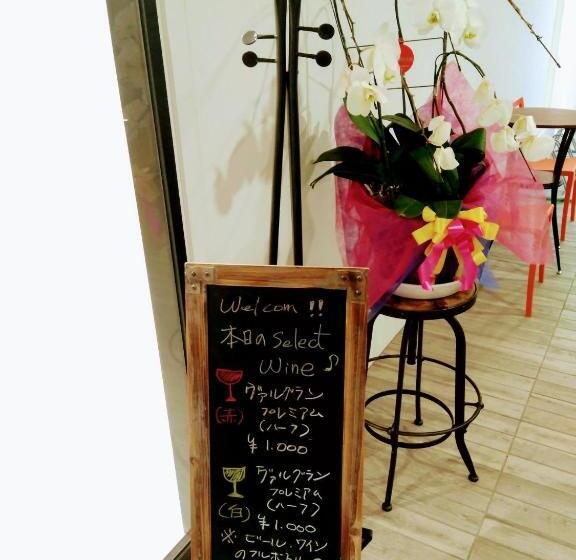 Welcom !!
本日の Select
Wine ♪
ヴァルグラン
(赤) プレミアム
(ハーフ)
¥1.000
ヴァルグラン
プレミアム
(白) (ハーフ)
¥1.000
※ ビール、ワイン
のフルボトル